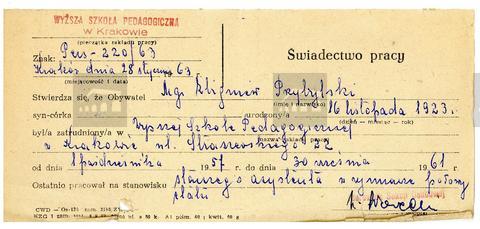 WYŻSZA SZKOŁA PEDAGOGICZNA
w Krakowie
(pieczątka zakładu pracy)
Znak: Pers-220/63
Kraków dnia 28 stycznia 63
(miejscowość i data)
Świadectwo pracy
Stwierdza się, że Obywatel Mgr Zbigniew Przybylski
(imię i nazwisko)
syn-córka urodzony/a 16 listopada 1923.
(dzień — miesiąc — rok)
był/a zatrudniony/a w Wyższej Szkole Pedagogicznej
(nazwa zakładu pracy)
w Krakowie ul. Straszewskiego 22
od dnia 1 października 1957 do dnia 30 września 1961 r.
Ostatnio pracował na stanowisku starszego asystenta w wymiarze połowy
etatu